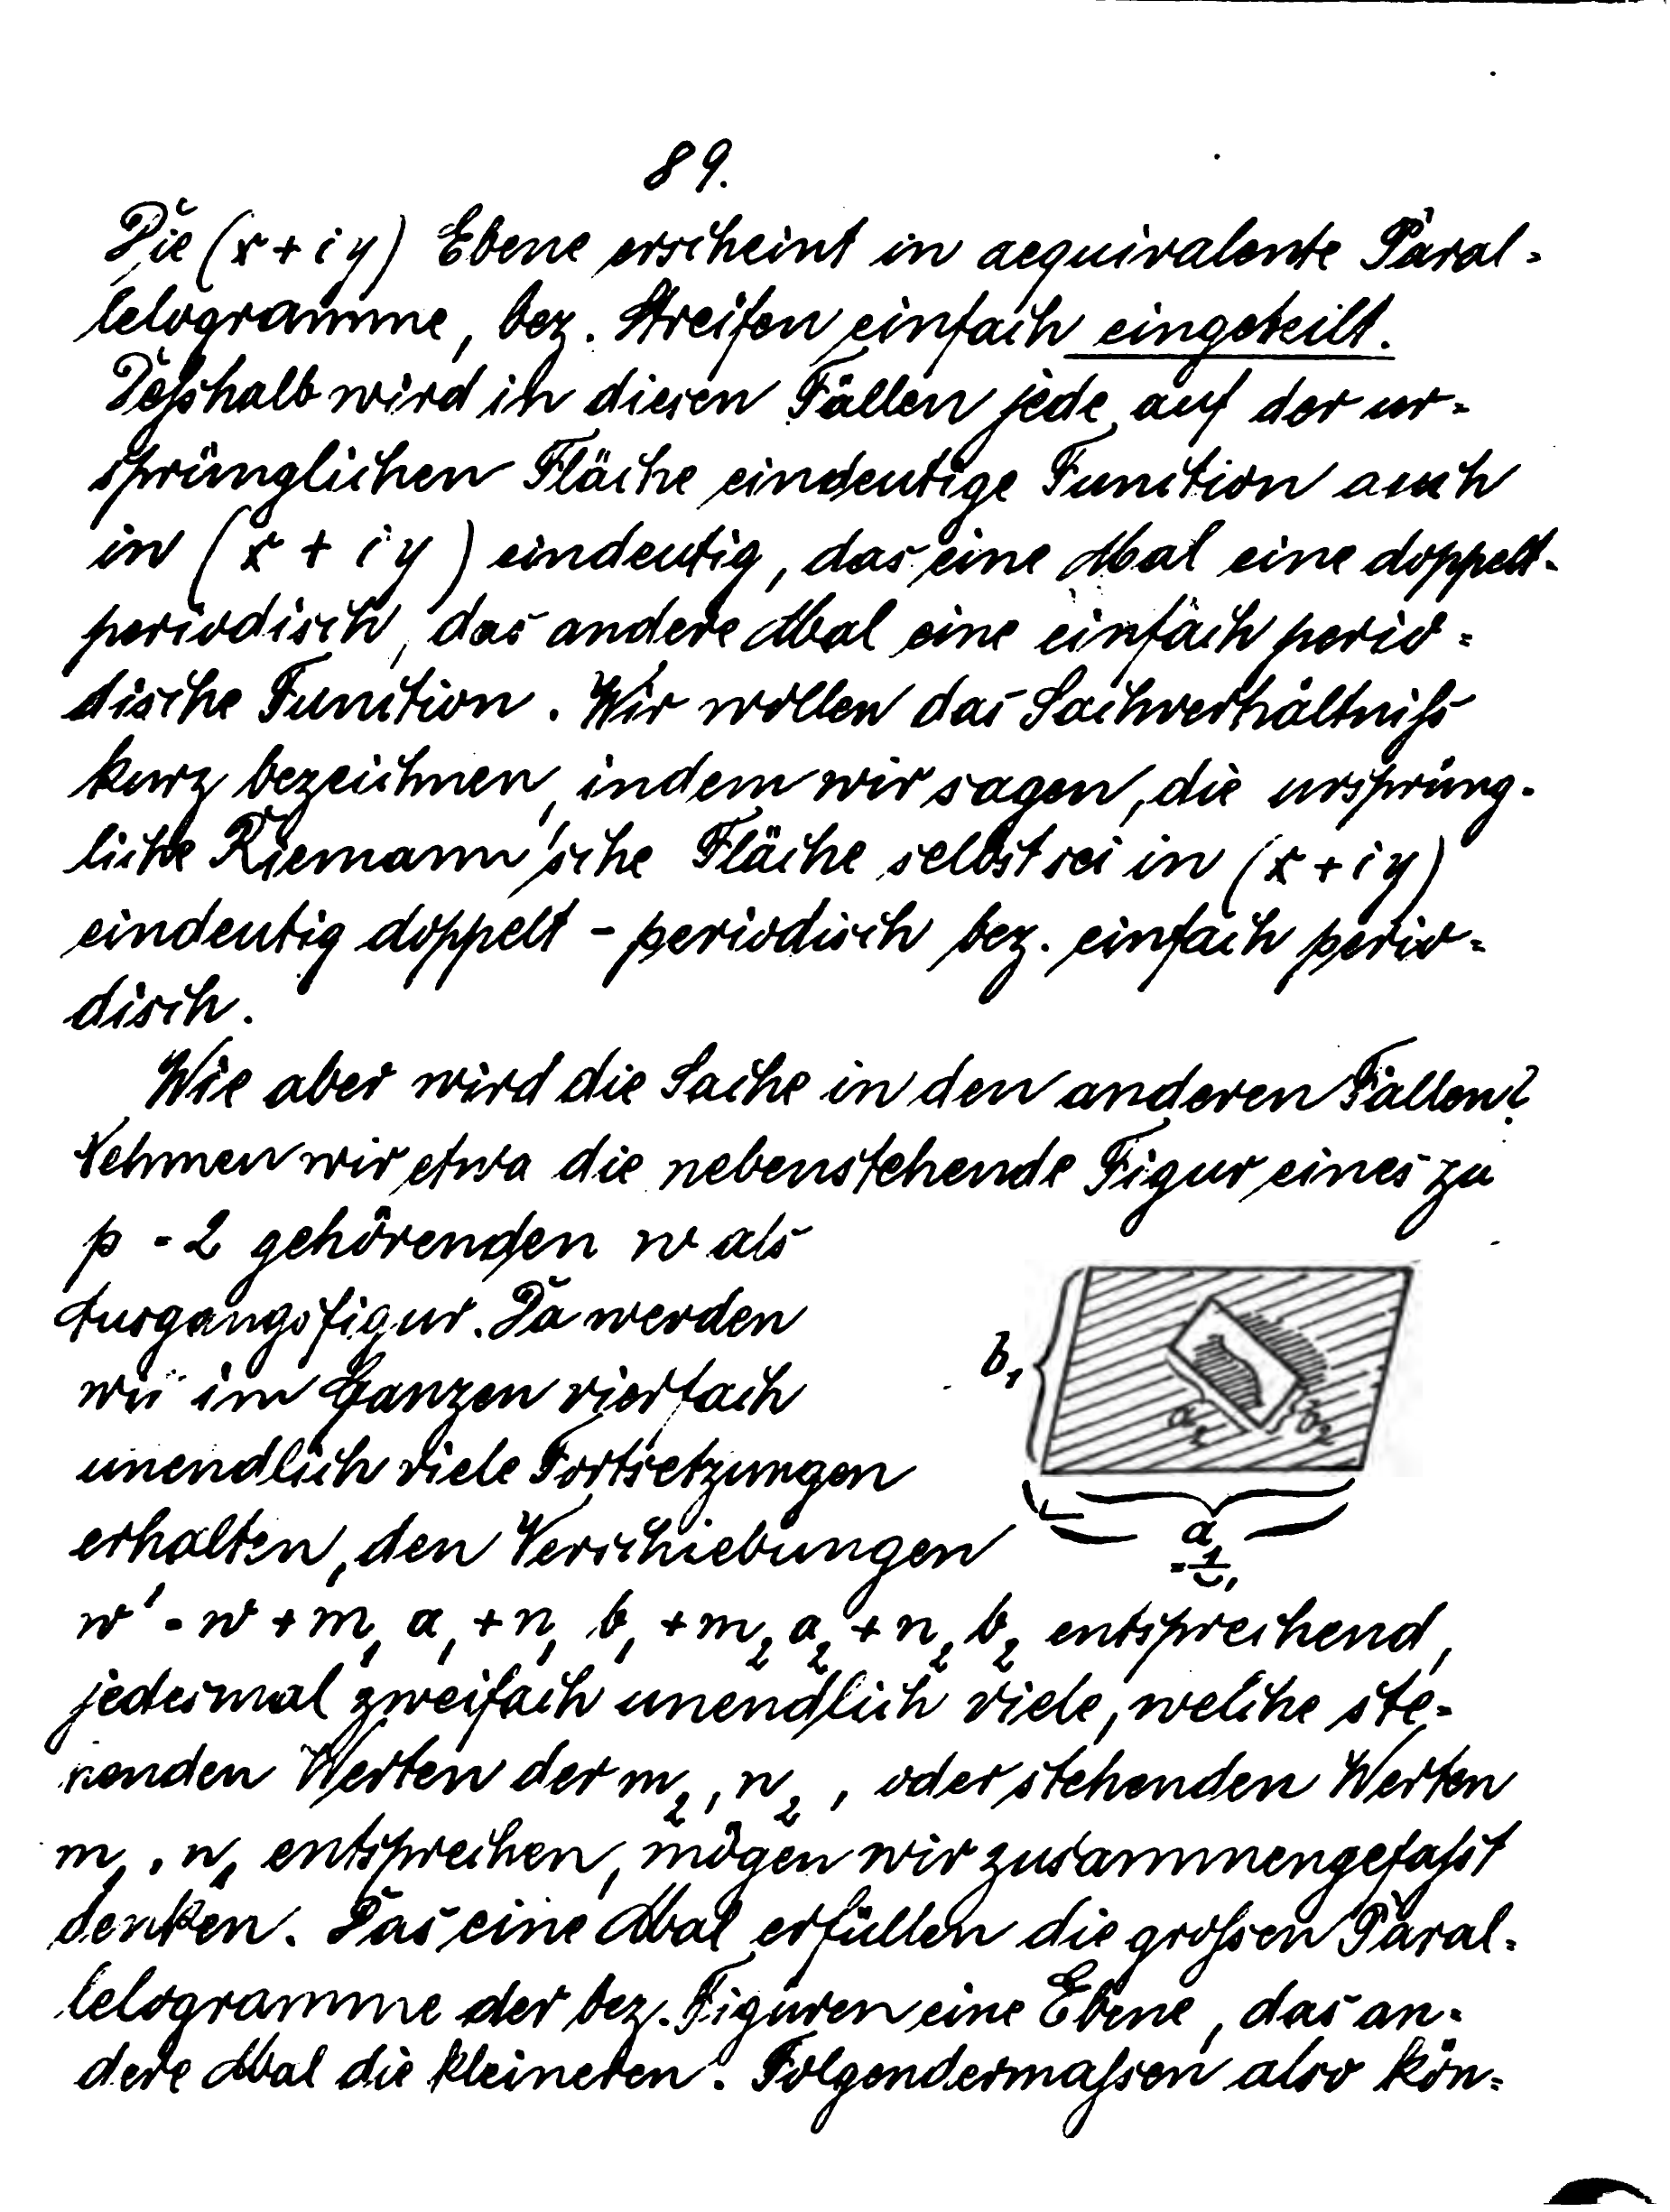 89.
Die (x + iy) Ebene erscheint in aequivalente Paral-
lelogramme, bez. Streifen einfach eingeteilt.
Deßhalb wird in diesen Fällen jede auf der ur-
sprünglichen Fläche eindeutige Function auch
in (x + iy) eindeutig, das eine Mal eine doppelt-
periodisch, das andere Mal eine einfach perio-
dische Function. Wir wollen das Sachverhältniß
kurz bezeichnen, indem wir sagen, die ursprüng-
liche Riemann'sche Fläche selbst sei in (x + iy)
eindeutig doppelt - periodisch bez. einfach perio-
disch.
Wie aber wird die Sache in den anderen Fällen?
Nehmen wir etwa die nebenstehende Figur eines zu
p = 2 gehörenden w als
Ausgangsfigur. Da werden
wir im Ganzen vierfach
unendlich viele Fortsetzungen
erhalten, den Verschiebungen
b₁
a₂
b₂
a₁
w' = w + m₁ a₁ + n₁ b₁ + m₂ a₂ + n₂ b₂ entsprechend,
jedesmal zweifach unendlich viele, welche ste-
henden Werten der m₂, n₂, oder stehenden Werten
m₁, n₁ entsprechen, mögen wir zusammengefaßt
denken. Das eine Mal erfüllen die großen Paral-
lelogramme der bez. Figuren eine Ebene, das an-
dere Mal die kleineren. Folgendermaßen also kön-